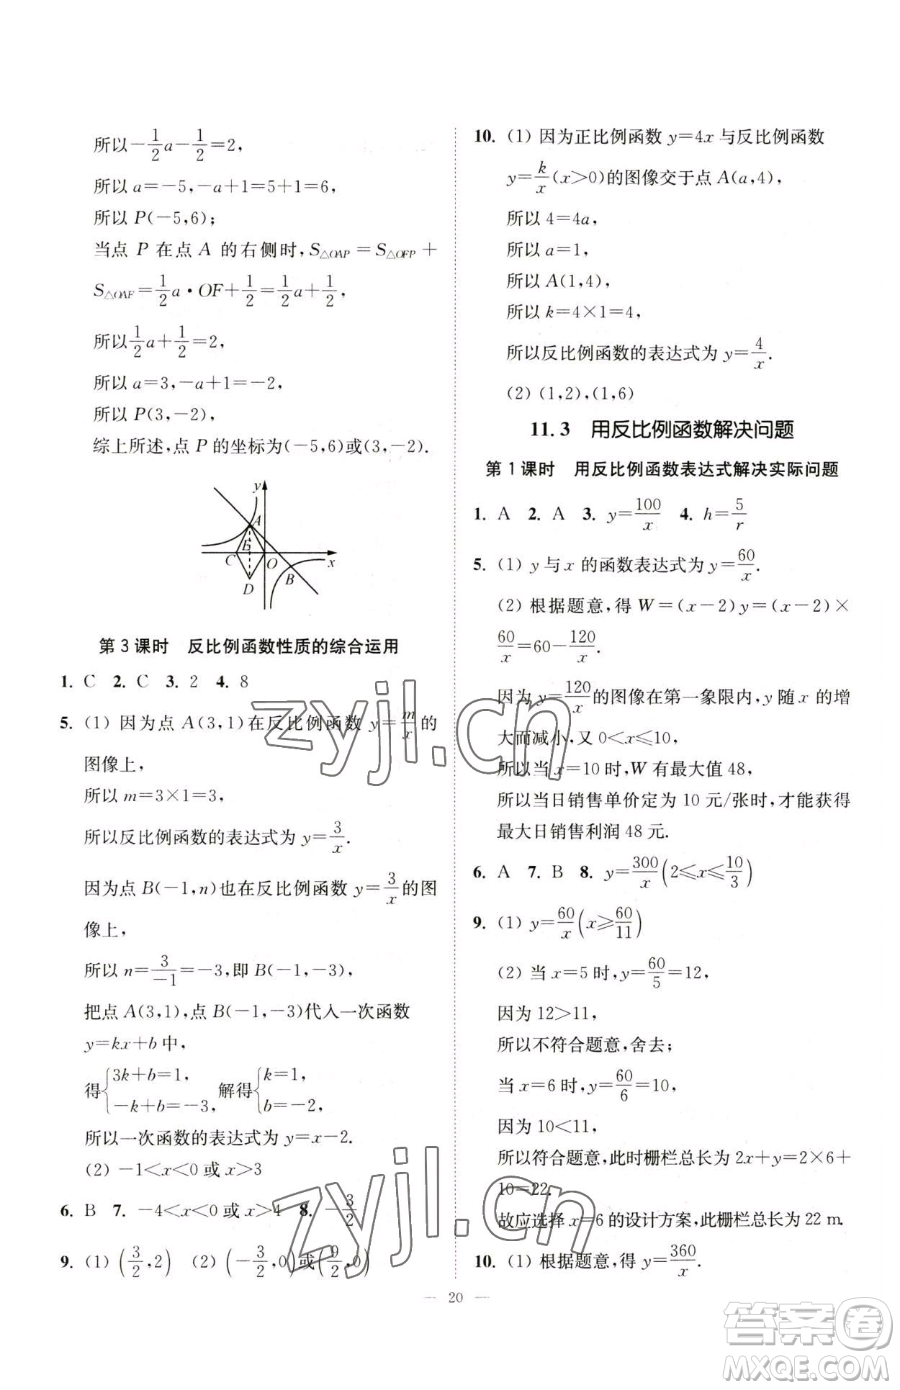 所以-\frac{1}{2}a-\frac{1}{2}=2,
所以 a=-5,-a+1=5+1=6,
所以 P(-5,6);
当点 P 在点 A 的右侧时,S△OAP=S△OFP+
S△OAF=\frac{1}{2}a·OF+\frac{1}{2}=\frac{1}{2}a+\frac{1}{2},
所以\frac{1}{2}a+\frac{1}{2}=2,
所以 a=3,-a+1=-2,
所以 P(3,-2),
综上所述,点 P 的坐标为(-5,6)或(3,-2).
y
A
E
C O x
B
D
第 3 课时 反比例函数性质的综合运用
1. C 2. C 3. 2 4. 8
5. (1) 因为点 A(3,1)在反比例函数 y=\frac{m}{x}的
图像上,
所以 m=3×1=3,
所以反比例函数的表达式为 y=\frac{3}{x}.
因为点 B(-1,n)也在反比例函数 y=\frac{3}{x}的图
像上,
所以 n=\frac{3}{-1}=-3,即 B(-1,-3),
把点 A(3,1),点 B(-1,-3)代入一次函数
y=kx+b 中,
得{3k+b=1, -k+b=-3, 解得{k=1, b=-2.
所以一次函数的表达式为 y=x-2.
(2) -1<x<0 或 x>3
6. B 7. -4<x<0 或 x>4 8. -\frac{3}{2}
9. (1) (\frac{3}{2},2) (2) (-\frac{3}{2},0)或(\frac{9}{2},0)
10. (1) 因为正比例函数 y=4x 与反比例函数
y=\frac{k}{x}(x>0)的图像交于点 A(a,4),
所以 4=4a,
所以 a=1,
所以 A(1,4),
所以 k=4×1=4,
所以反比例函数的表达式为 y=\frac{4}{x}.
(2) (1,2),(1,6)
11.3 用反比例函数解决问题
第 1 课时 用反比例函数表达式解决实际问题
1. A 2. A 3. y=\frac{100}{x} 4. h=\frac{5}{r}
5. (1) y 与 x 的函数表达式为 y=\frac{60}{x}.
(2) 根据题意,得 W=(x-2)y=(x-2)×
\frac{60}{x}=60-\frac{120}{x}.
因为 y=\frac{120}{x}的图像在第一象限内,y 随 x 的增
大而减小,又 0<x≤10,
所以当 x=10 时,W 有最大值 48,
所以当日销售单价定为 10 元/张时,才能获得
最大日销售利润 48 元.
6. A 7. B 8. y=\frac{300}{x}(2≤x≤\frac{10}{3})
9. (1) y=\frac{60}{x}(x≥\frac{60}{11})
(2) 当 x=5 时,y=\frac{60}{5}=12,
因为 12>11,
所以不符合题意,舍去;
当 x=6 时,y=\frac{60}{6}=10,
因为 10<11,
所以符合题意,此时栅栏总长为 2x+y=2×6+
10=22.
故应选择 x=6 的设计方案,此栅栏总长为 22 m.
10. (1) 根据题意,得 y=\frac{360}{x}.
— 20 —
zyjl.cn
zyjl.cn
答案圈
MXQE.COM